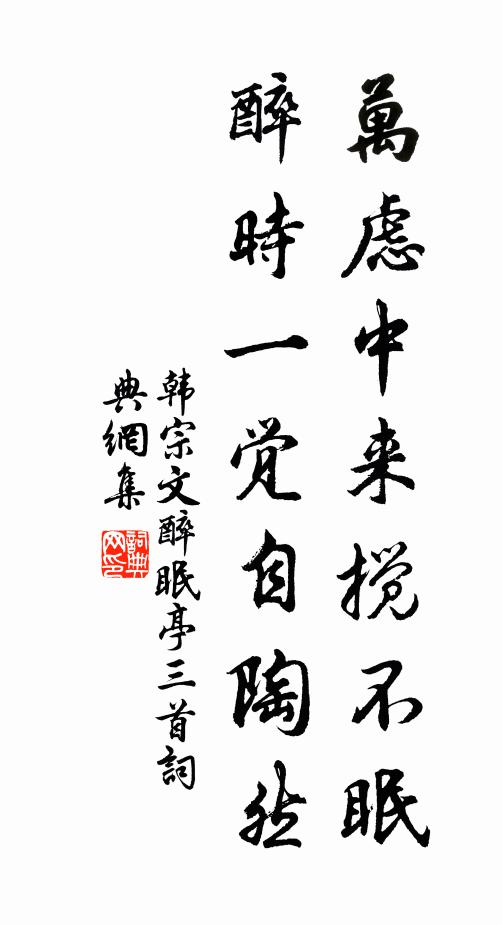 萬慮中来搅不眠
醉時一觉自陶然
韩宗文醉眠亭三首詞
典網集
詞典网印